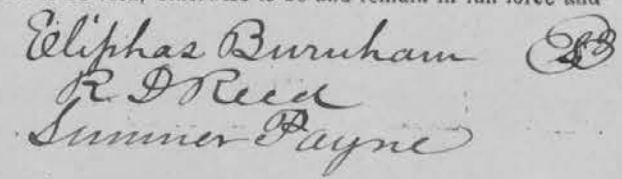 otherwise to be and remain in full force and
Eliphas Burnham
R. D Reed
Sumner Payne